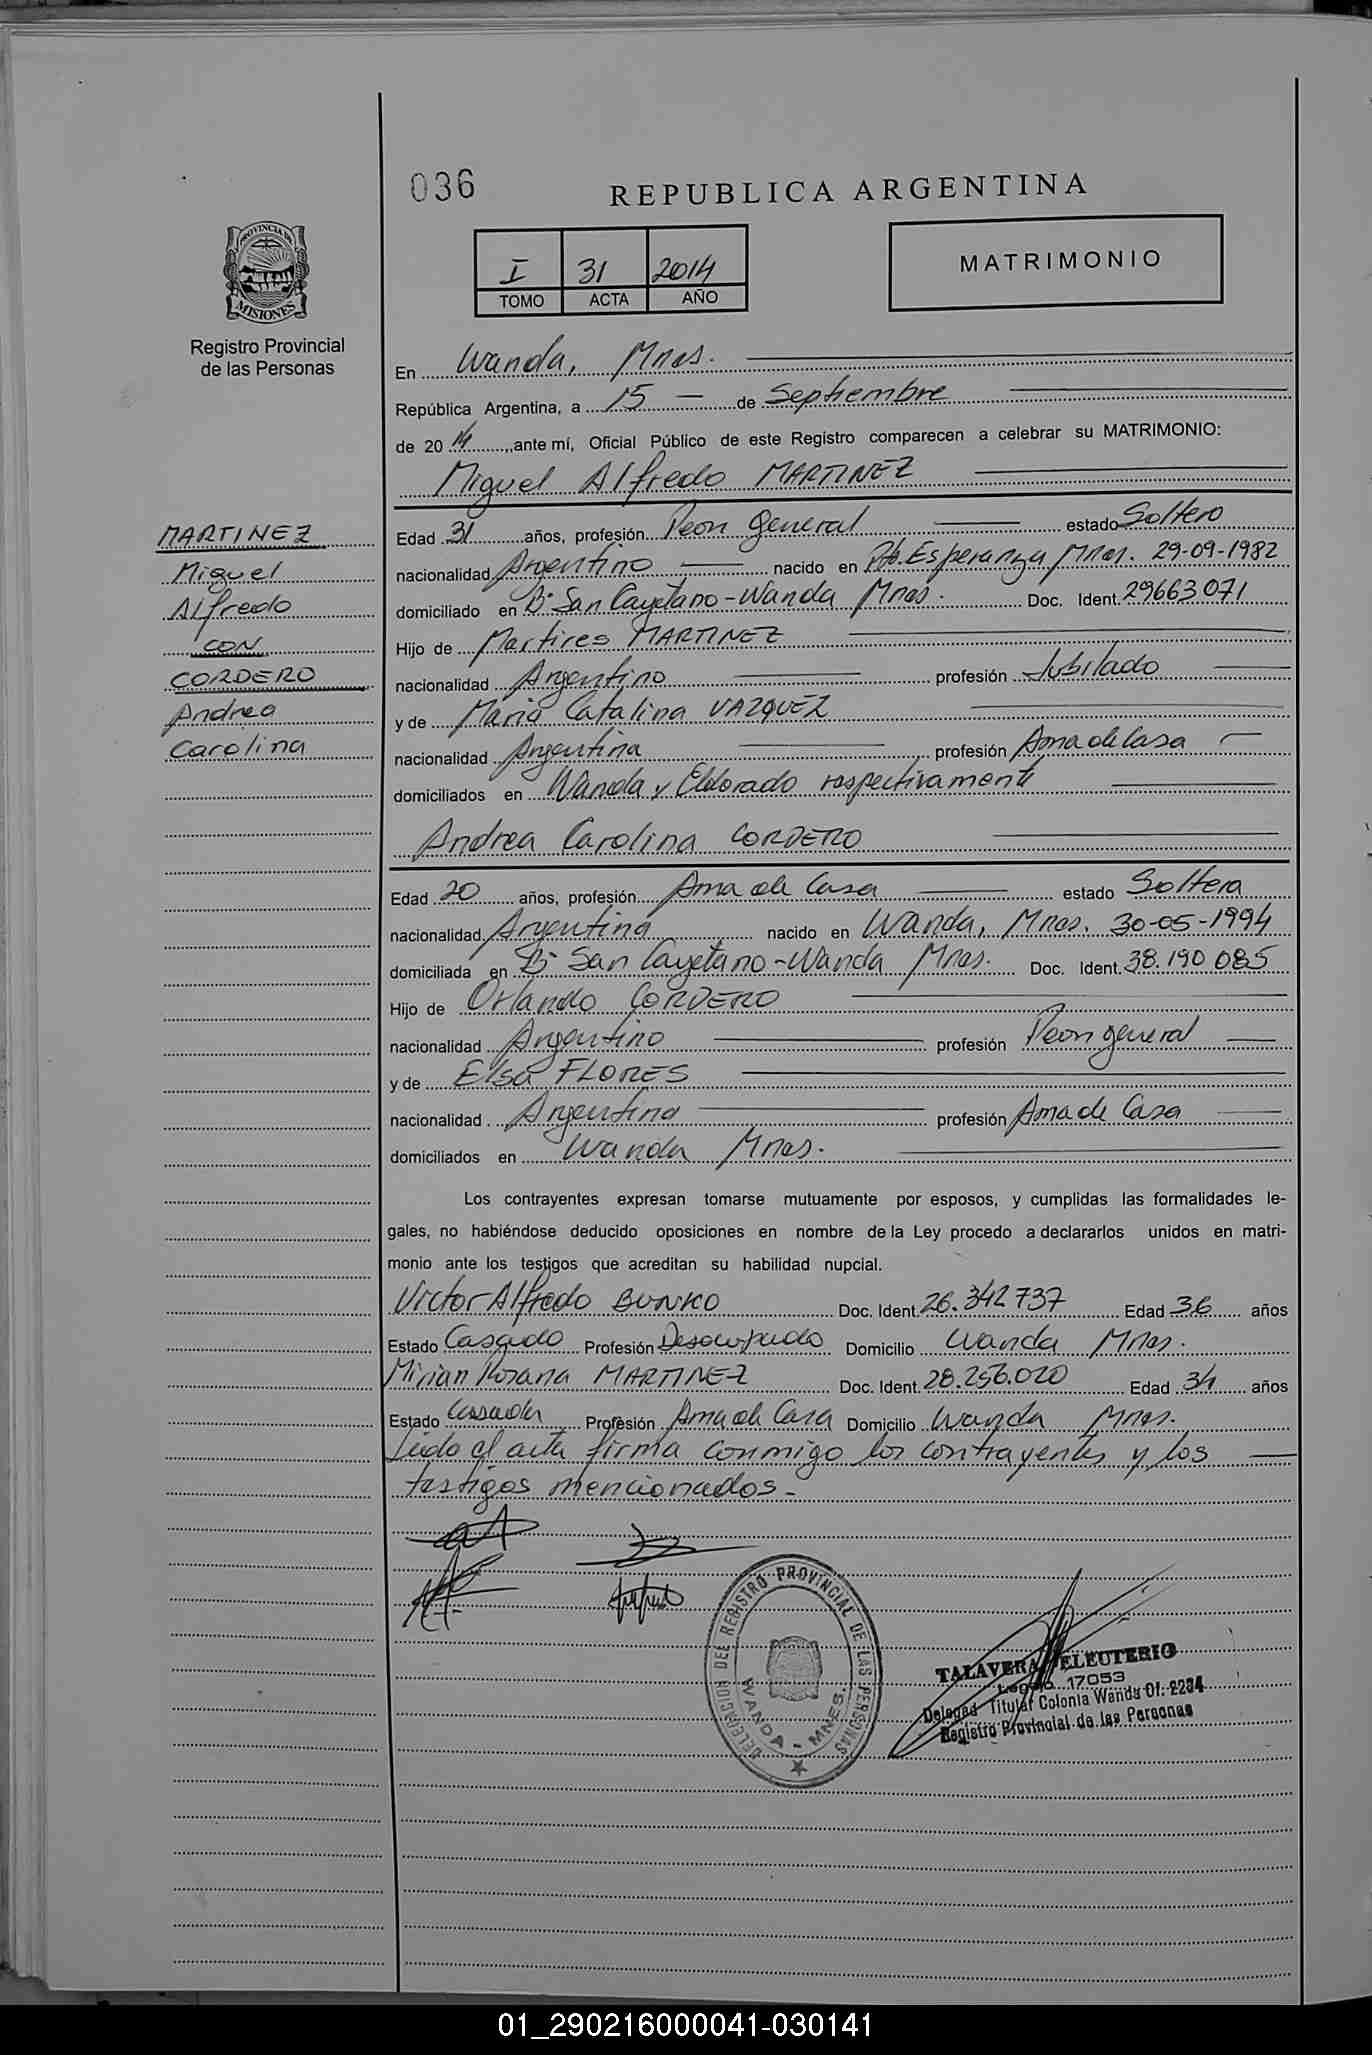 036
REPUBLICA ARGENTINA
PROVINCIA DE
MISIONES
Registro Provincial
de las Personas
I 31 2014
TOMO ACTA AÑO
MATRIMONIO
En Wanda, Mnes.
República Argentina, a 15 — de Septiembre
de 2014, ante mí, Oficial Público de este Registro comparecen a celebrar su MATRIMONIO:
Miguel Alfredo MARTINEZ
MARTINEZ
Miguel
Alfredo
CON
CORDERO
Andrea
Carolina
Edad 31 años, profesión Peon General estado Soltero
nacionalidad Argentino nacido en Pto. Esperanza Mnes. 29-09-1982
domiciliado en B° San Cayetano - Wanda Mnes. Doc. Ident. 29663071
Hijo de Martires MARTINEZ
nacionalidad Argentino profesión Jubilado
y de Maria Catalina VAZQUEZ
nacionalidad Argentina profesión Ama de Casa
domiciliados en Wanda y Eldorado respectivamente
Andrea Carolina CORDERO
Edad 20 años, profesión Ama de Casa estado Soltera
nacionalidad Argentina nacido en Wanda, Mnes. 30-05-1994
domiciliada en B° San Cayetano - Wanda Mnes. Doc. Ident. 38.190 085
Hijo de Orlando CORDERO
nacionalidad Argentino profesión Peon general
y de Elsa FLORES
nacionalidad Argentina profesión Ama de Casa
domiciliados en Wanda Mnes.
Los contrayentes expresan tomarse mutuamente por esposos, y cumplidas las formalidades le-
gales, no habiéndose deducido oposiciones en nombre de la Ley procedo a declararlos unidos en matri-
monio ante los testigos que acreditan su habilidad nupcial.
Victor Alfredo BUNKO Doc. Ident. 26.342 737 Edad 36 años
Estado Casado Profesión Desocupado Domicilio Wanda Mnes.
Mirian Rosana MARTINEZ Doc. Ident. 28.256.020 Edad 34 años
Estado Casada Profesión Ama de Casa Domicilio Wanda Mnes.
Leido el acta firma conmigo los contrayentes y los
testigos mencionados -
DELEGACION DEL REGISTRO PROVINCIAL DE LAS PERSONAS
WANDA - MNES.
TALAVERA ELEUTERIO
Legajo 17053
Delegad Titular Colonia Wanda Of. 2234
Registro Provincial de las Personas
01_290216000041-030141